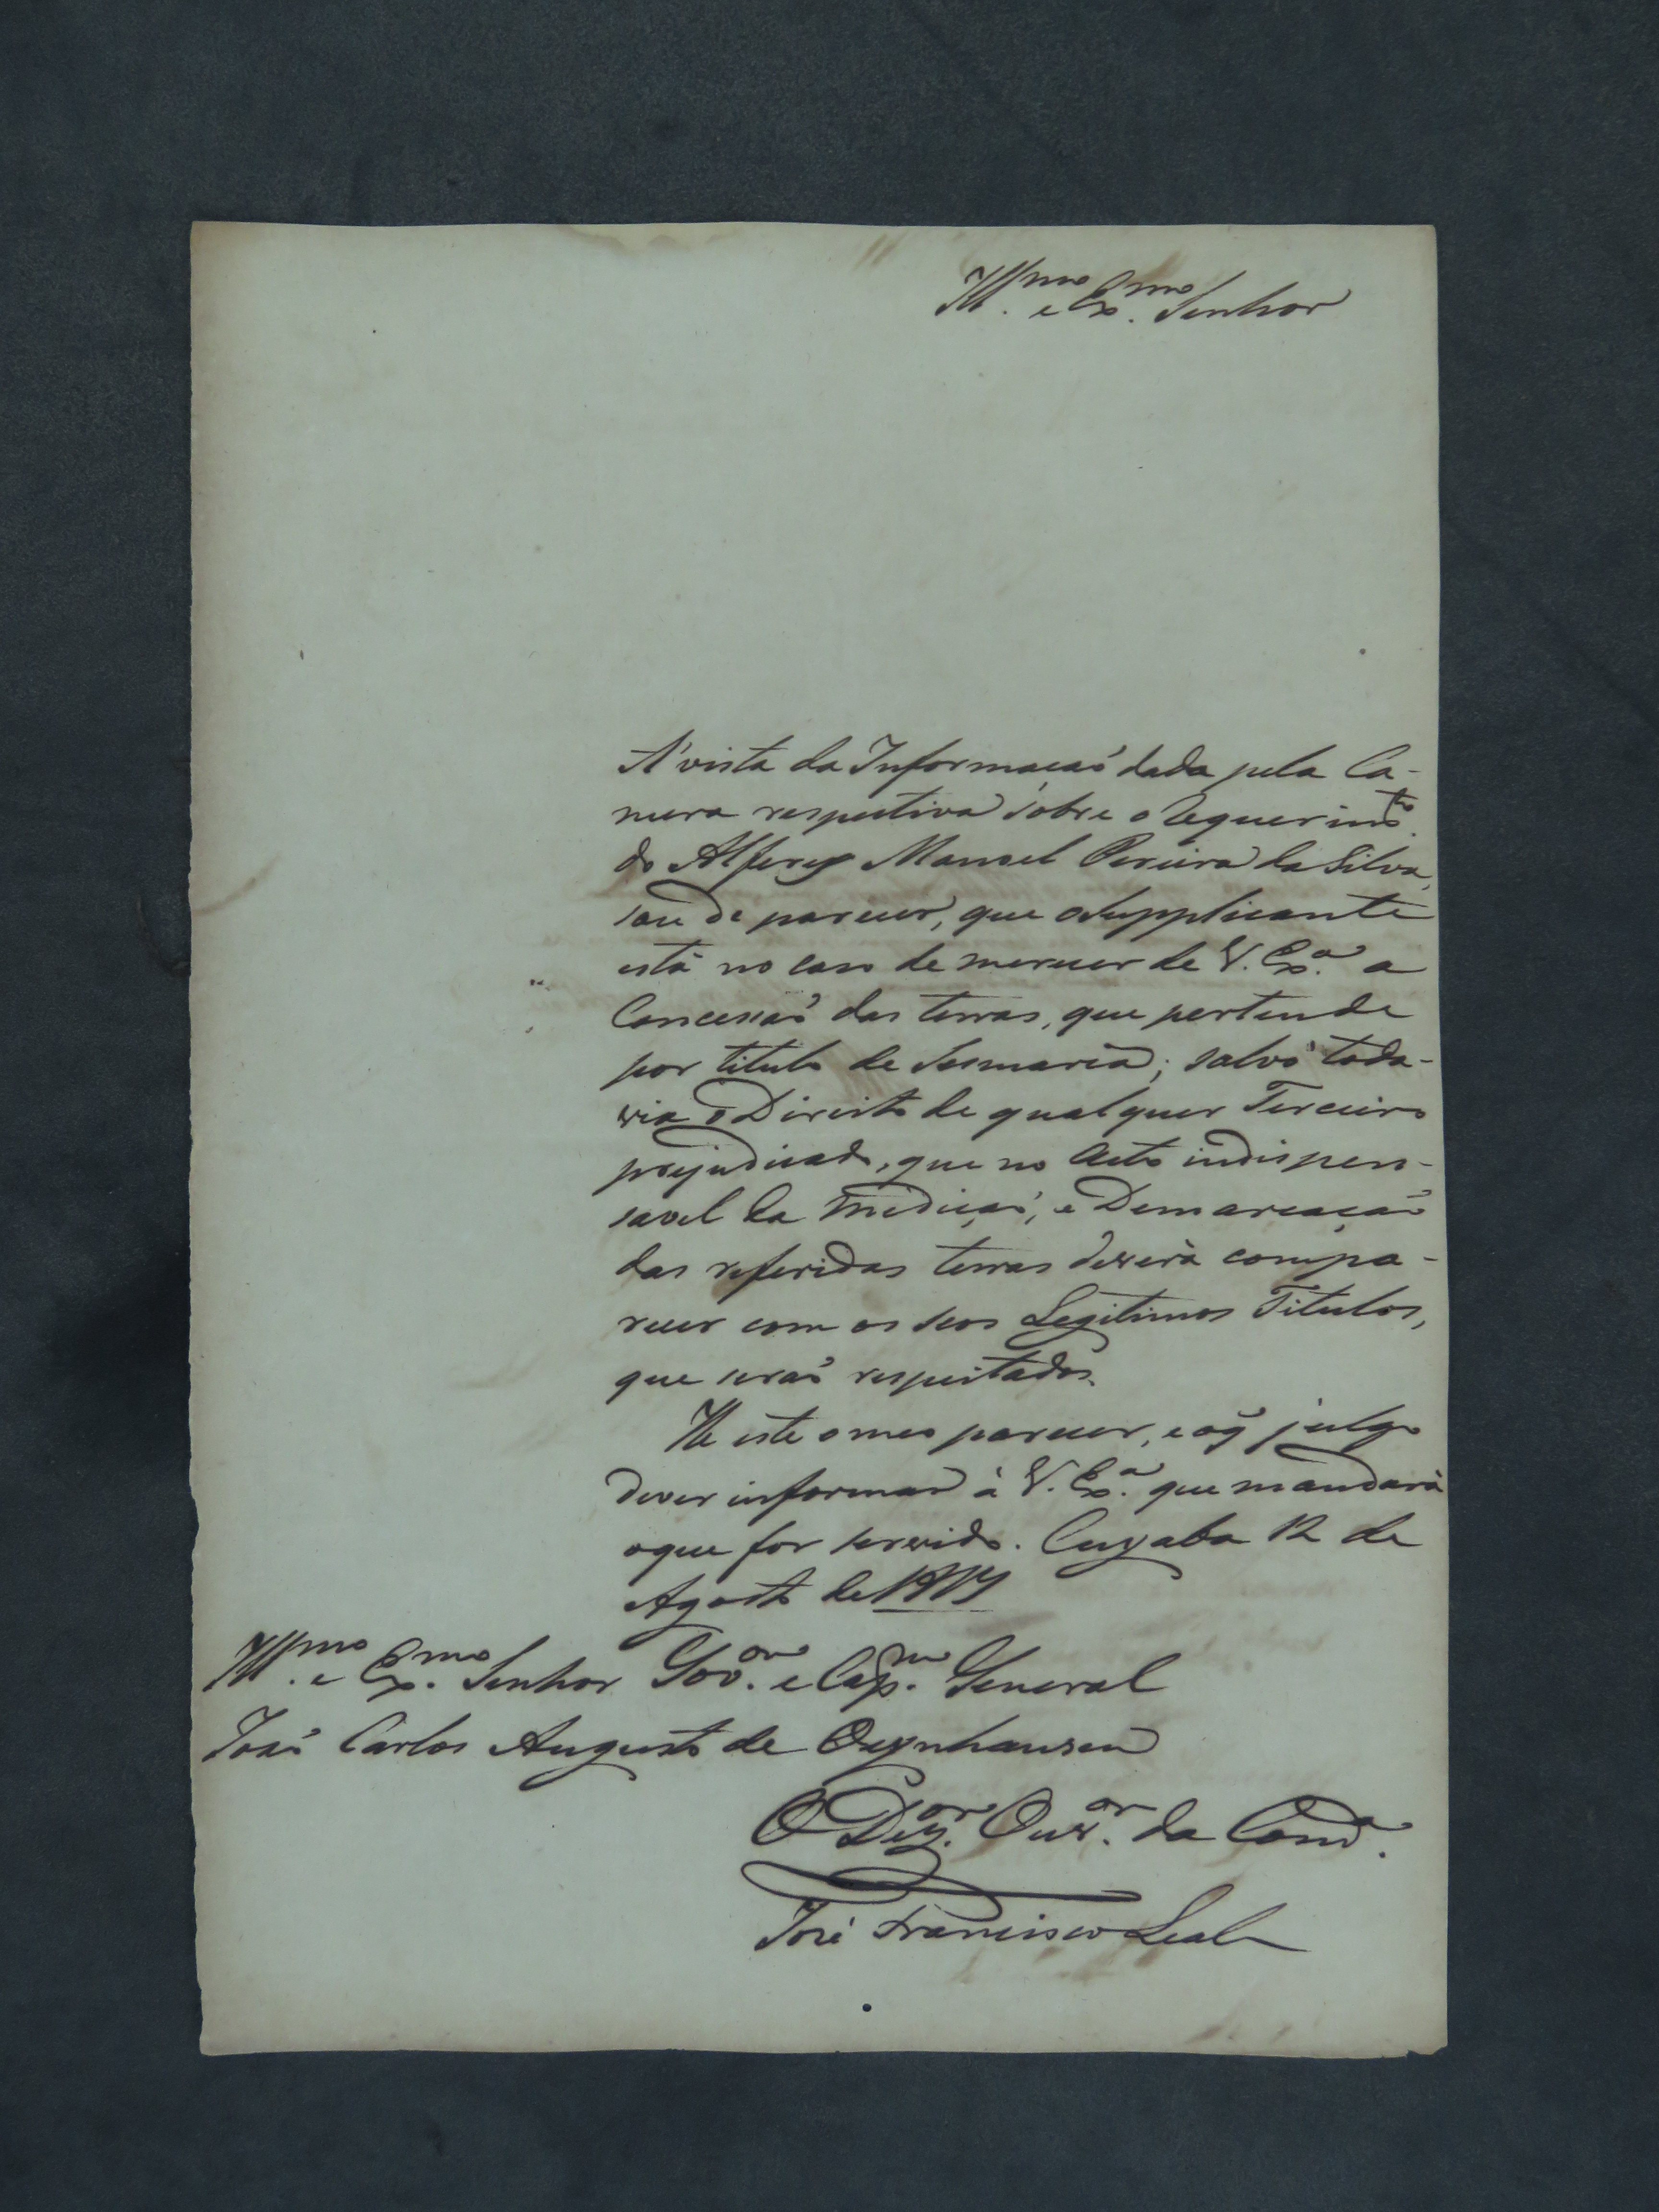 Ill.mo e Ex.mo Senhor
A' vista da Informaçaõ dada pela Ca-
mera respectiva sobre o Requerim.to
do Alferes Manoel Pereira da Silva,
sou de parecer, que o Supplicante
está no caso de merecer de V. Ex.a a
Concessaõ das terras, que pertende
por titulo de Sesmaria; salvo toda-
via o Direito de qualquer Terceiro
prejudicado, que no Acto indispen-
savel da Mediçaõ, e Demarcaçaõ
das referidas terras deverà compa-
recer com os seos Legitimos Titulos,
que seraõ respeitados.
He este o meo parecer, e o q̃ julgo
dever informar à V. Ex.a que mandarà
o que for servido. Cuyaba 12 de
Agosto de
Ill.mo e Ex.mo Senhor Gov.or e Cap.m General
Joaõ Carlos Augusto de Oeynhausen
O Dez.or Ouv.or da Com.a
José Francisco Leal